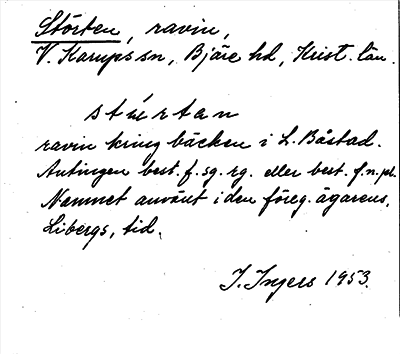 Störten, ravin,
V. Karups sn, Bjäre hd, Krist. län.
stú́ertan
ravin kring bäcken i L. Båstad.
Antingen best. f. sg. rg. eller best. f. n. pl.
Namnet använt i den föreg. ägarens,
Libergs, tid.
I. Ingers 1953.